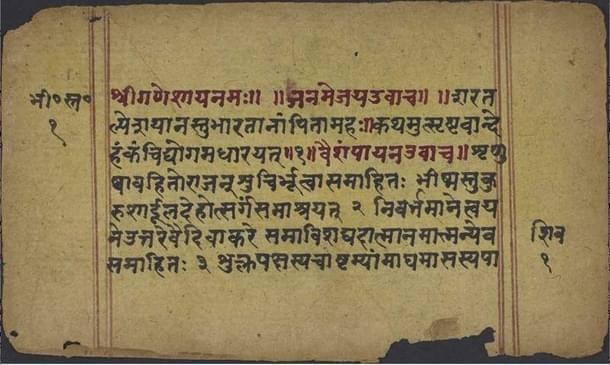 भी॰स्त॰
१
श्रीगणेशायनमः॥ ॥जनमेजयउवाच॥ ॥शरत
ल्पेशयानस्तुभारतानांपितामहः॥कथमुत्सृष्टवान्दे
हंकंचिद्योगमधारयत्॥१॥वैशंपायनउवाच॥शृणु
ष्वावहितोराजन्शुचिर्भूत्वासमाहितः भीष्मस्तुकु
रुशार्दूलदेहोत्सर्गंसमाश्रयत् २ निवर्त्तमानेत्वय
नेउत्तरेवैदिवाकरे समाविशघदात्मानमात्मन्येव
समाहितः ३ शुक्लपक्षस्यचाष्टम्यांमाघमासस्यपा
शिव
१